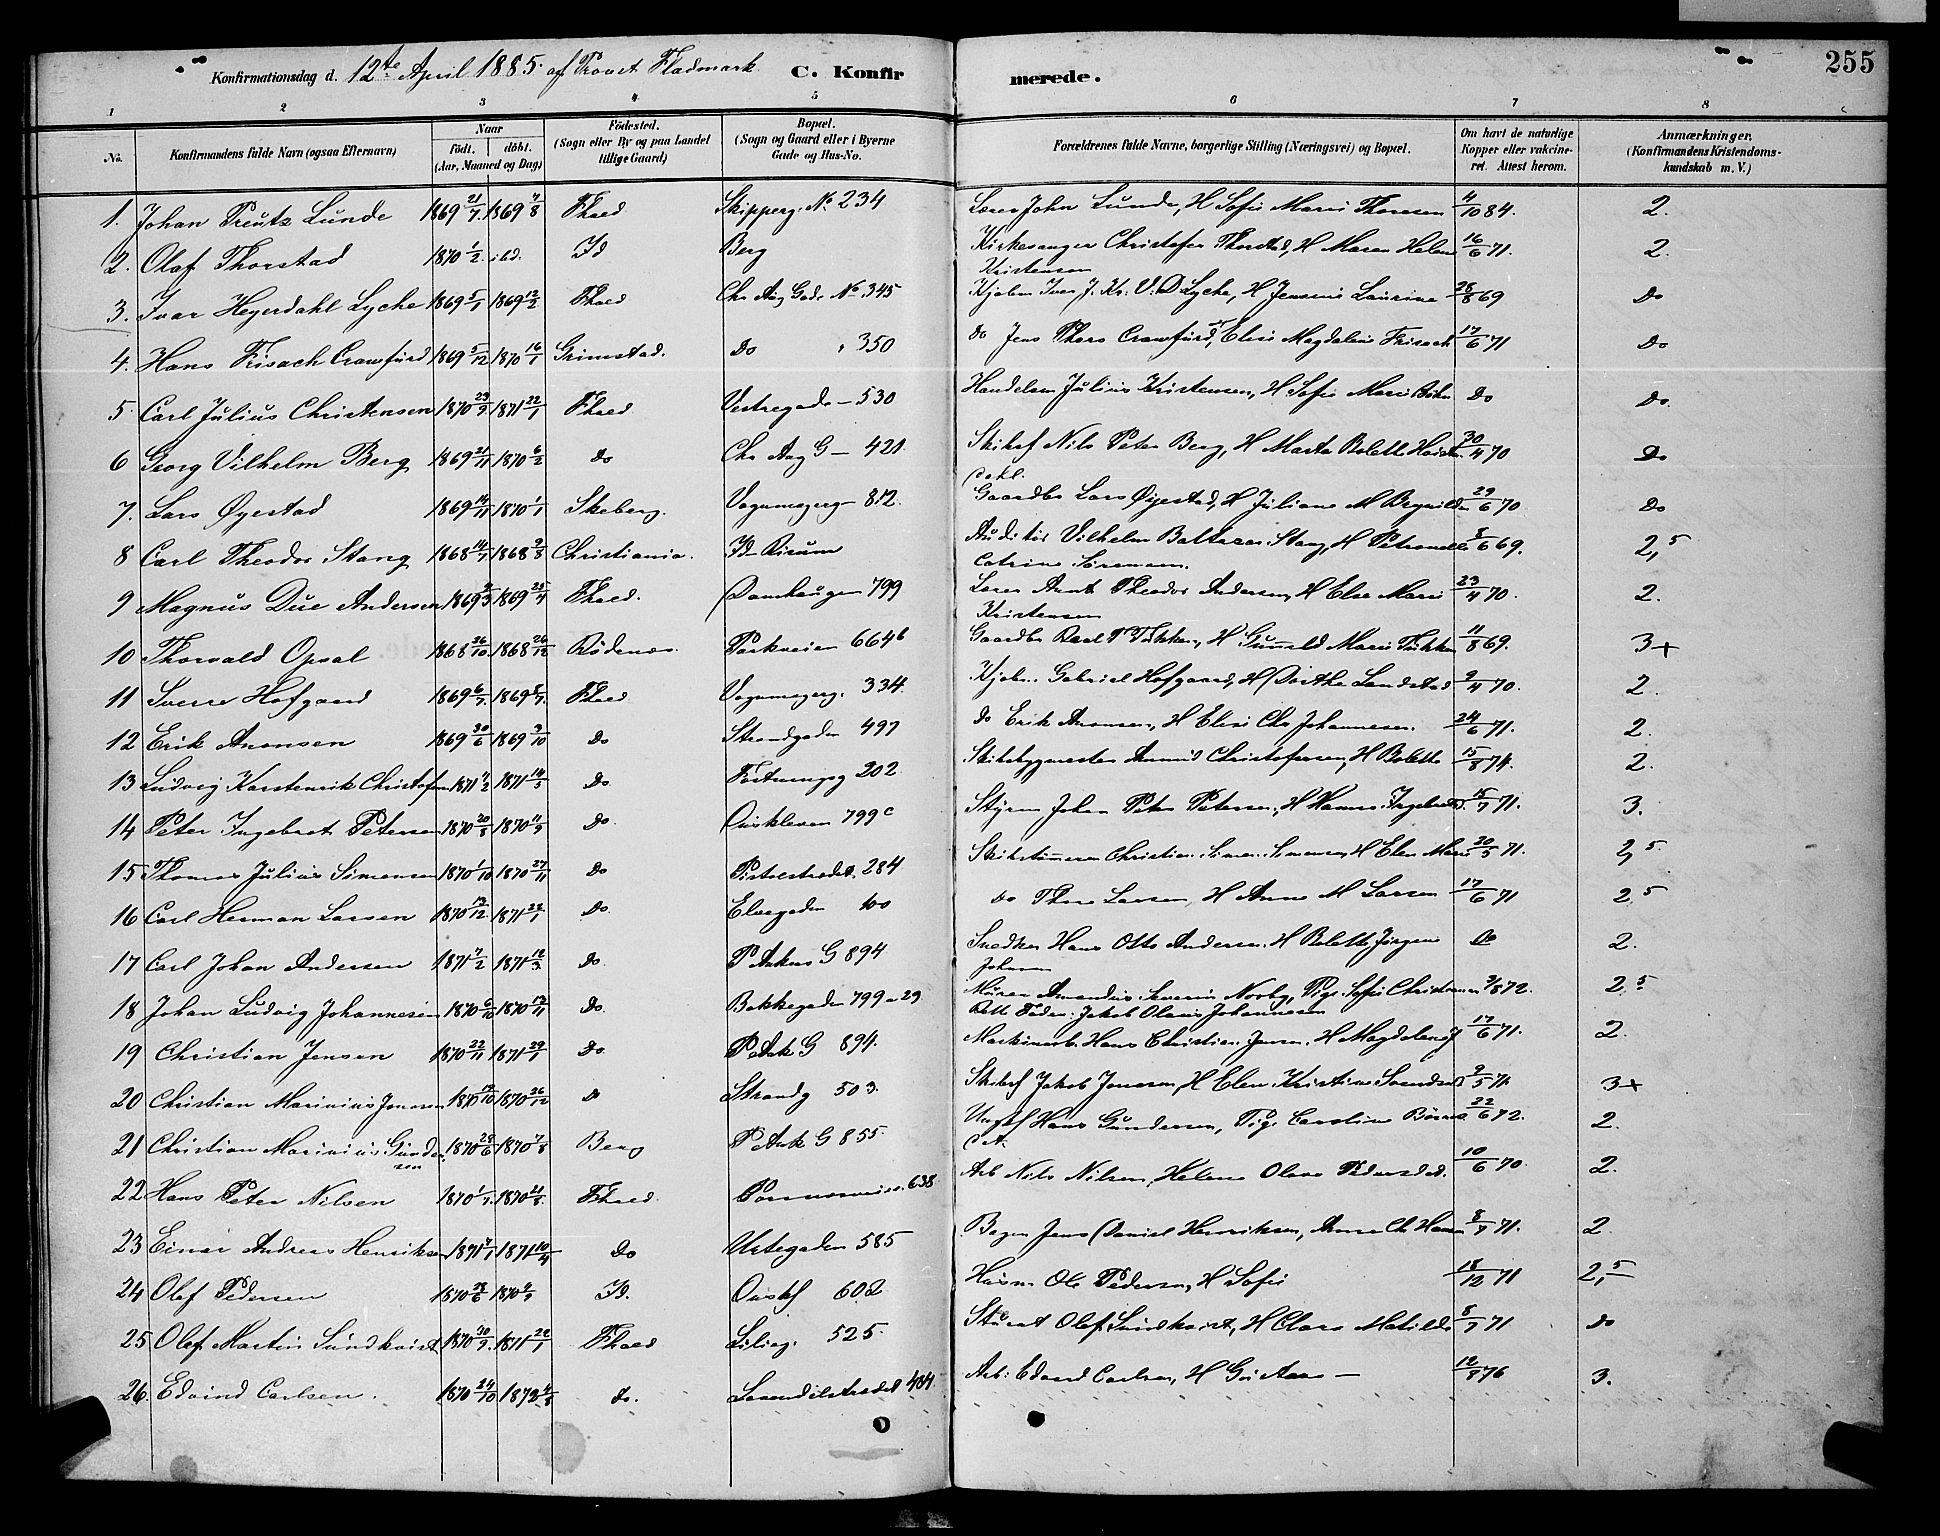 255
Konfirmationsdag d. 12te April 1885 af Provst Fladmark C. Konfirmerede.
1 2 3 4 5 6 7 8
No. Konfirmandens fulde Navn (ogsaa Efternavn) Naar födt. döbt. (Aar, Maaned og Dag) Födested. (Sogn eller By og paa Landet tillige Gaard) Bopæl. (Sogn og Gaard eller i Byerne Gade og Hus-No. Forældrenes fulde Navne, borgerlige Stilling (Næringsvei) og Bopæl. Om havt de naturlige Kopper eller vakcineret. Attest herom. Anmærkninger. (Konfirmandens Kristendomskundskab m. V.)
1. Johan Preutz Lunde 1869 21/7 1869 7/8 Fhald Skipperg. No 234 Lærer John Lunde, H Sofie Marie Thoresen 4/10 84. 2.
2. Olaf Thorstad 1870 1/2 Id Berg Kirkesanger Christofer Thorstad, H Maren Helene Kristensen 16/6 71. 2.
3. Ivar Heyerdahl Lyche 1869 5/1 1869 12/2 Fhald Chr Aug Gade No 345 Kjøbm Iver J. Kr. V. D Lyche, H Jensine Laurine 28/8 69 Do
4. Hans Frisach Crawfurd 1869 5/12 1870 16/1 Grimstad. Do " 350 do Jens Thore Crawfurd, Elise Magdalene Frisach 17/6 71 Do
5. Carl Julius Christensen 1870 23/9 1871 22/1 Fhald Vestregade - 530 Handelsm Julius Kristensen, H Sofie Marie Do Do.
6 Georg Vilhelm Berg 1869 21/11 1870 6/2 Do Chr Aug G - 421 Skibsf Nils Peter Berg, H Marta Bolette 30/4 70 Do
7. Lars Øyestad 1869 14/11 1870 1/1 Skeberg. Vognmagerg - 812. Gaardbr Lars Øyestad, H Juliane M 29/6 70 Do
8 Carl Theodor Stang 1868 14/7 1868 9/8 Christiania. Id Risum Auditør Vilhelm Baltazar Stang, H Petronelle Catrine Sørensen. 8/6 69. 2,5
9 Magnus Due Andersen 1869 1869 25/4 Fhald. Damhaugen 799 Lærer Arnt Theodor Andersen, H Elise Marie Kristensen 23/4 70. 2.
10 Thorvald Opsal 1868 26/10 1868 26/12 Rødenes. Parkveien 664b Gaardbr H Gunnild Marie 11/8 69. 3+
11 Sverre Hofgaard 1869 6/7 1869 Fhald Vognmagerg. 334. Kjøbm. Gabriel Hofgaard, H Dorthe Landstad 9/4 70. 2.
12 Erik Anonsen 1869 30/6 1869 3/10 Do Strandgaden 497 do Erik Anonsen, H Elise Chr Johannesen. 24/6 71. 2.
13 Ludvig Karstenrik Christofersen 1871 1/2 1871 14/5 Do 202 Skibsbygmester Christofersen, H Bolette 15/8 74. 2.
14 Peter Ingebret Petersen 1870 20/8 1870 11/9 Do. Ouskleven 799c Styrm Johan Peter Petersen, H Hanna 15/7 71. 3.
15 Thomas Julius Simensen 1870 1/10 1870 27/11 Do Pistolstrædet. 284 Skibstømmerm Christian Simensen, H Elen Marie 20/5 71. 2,5
16 Carl Herman Larsen 1870 12/12 1871 22/1 Do. Elvegaden 100 do Thore Larsen, H Anne M Larsen 17/6 71 2,5
17 Carl Johan Andersen 1871 7/2 1871 12/3 Do. P Ankers G 894 Snedker Hans Otto Andersen. H Bolette Jørgine Johansen Do 2.
18 Johan Ludvig Johannesen 1870 6/10 1870 13/11 Do. Bakkegaden 799 a 29 Murer Amandus Severin Norby, Pige Sofie Christensen 3/8 72. 2,5
Rette Fader: Jakob Olaus Johannesen
19 Christian Jensen 1870 22/11 1871 29/1 Do. P Ank G 894. Maskinarb. Hans Christian Jensen. H Magdalene J 17/6 71. 2.
20 Christian Marinius Jonasen 1870 1870 26/12 Do Strandg 503. Skibsf Jakob Jonasen, H Elen Kristine 9/5 71. 3+
21 Christian Marinius Gundersen 1870 29/6 1870 7/8 Berg P Ank G 855. Hans Gundersen, Pige Caroline 22/6 72. 2.
22 Hans Peter Nilsen 1870 1/7 1870 21/8 Fhald. 638 Arb Nils Nilsen, Helene Olava Pedersdat. 10/6 70. 2.
23 Einar Andreas Henriksen 1871 1/1 1871 10/4 Do Urtegaden 585 Bager Jens Daniel Henriksen, Anne Ch 8/7 71. 2.
24 Olaf Pedersen 1870 1870 Id. 602 Husm. Ole Pedersen, H Sofie 18/12 71 2,5
25 Olaf Martin Sundkvist 1870 30/9 1871 22/1 Fhald Lilleg. 525. Stuert Olof Sundkvist, H Clara Matilde 8/7 71 do
26. Edvind Carlsen. 1870 24/10 1873 do. 484 Arb: Edvard Carlsen, H 12/8 76 3.